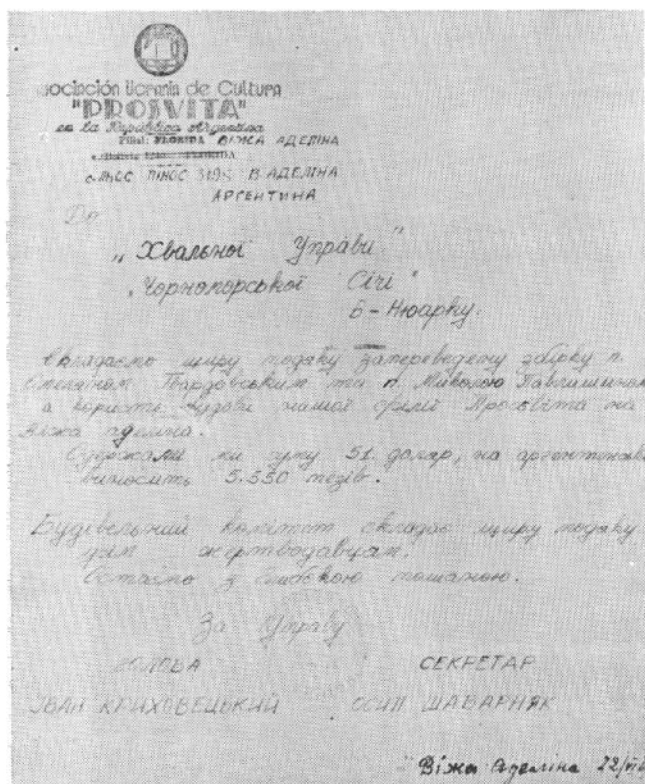 ociación Ucrania de Cultura
"PROSVITA"
en la República Argentina
Filial: FLORIDA ВІЖА АДЕЛІНА
ПІНОС 3195 В. АДЕЛІНА
АРГЕНТИНА
До
„Хвальної Управи"
„Чорноморської Січі"
в-Нюарку.
Складаємо щиру подяку запереведену збірку п.
Степаном Твардовським та п. Миколою Павлишином
а користь будови нашої філії Просвіта на
віжа аделіна.
Одержали ми суму 51. доляр, на аргентинські
виносить 5.550 пезів.
Будівельний комітет складає щиру подяку
цим жертводавцям.
Остаємо з глибокою пошаною.
За Управу
ГОЛОВА СЕКРЕТАР
ІВАН КРИХОВЕЦЬКИЙ ОСИП ШАВАРНЯК
Віжа Аделіна 22/